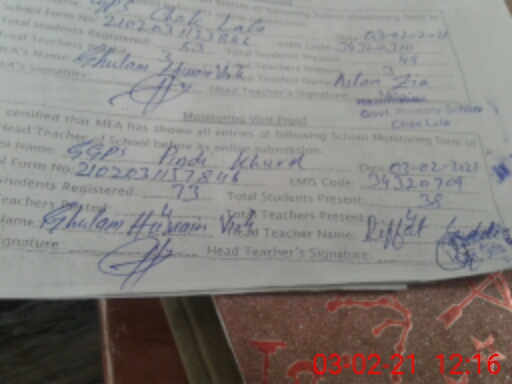 GPS Chak Lala
School Form No: 2102031123846 Date 03-02-2021
Total Students Registered: 53 EMIS Code: 34320310
Total Students Present: 49
MEA's Name: Ghulam Hussain Virk Head Teacher Name: Aslam Zia
MEA's Signature: Head Teacher's Signature:
Govt. Primary School
Chak Lala
Monitoring Visit Proof
certified that MEA has shown all entries of following School Monitoring form to
Head Teacher of School before its online submission.
ol Name: GGPS Pindi Khurd Date 03-02-2021
l Form No: 2102031157846 EMIS Code: 34320709
Students Registered: 73 Total Students Present: 38
Teachers Posted 4 Teachers Present 4
Name Ghulam Hussain Virk Head Teacher Name: Riffat
gnature: Head Teacher's Signature:
03-02-21 12:16